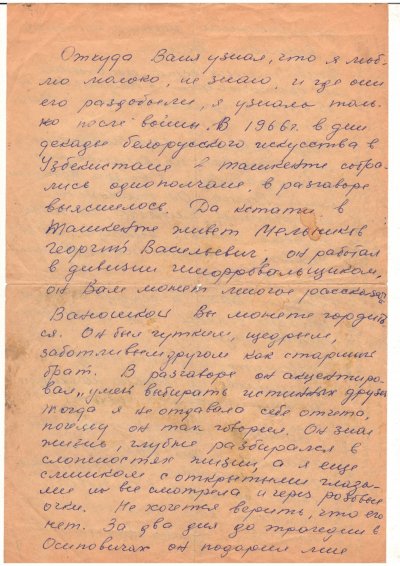 Откуда Ваня узнал, что я люб-
лю молоко, не знаю, и где они
его раздобыли, я узнала толь-
ко после войны. В 1966 г. в дни
декады белорусского искусства в
Узбекистане в Ташкенте собра-
лись однополчане, в разговоре
выяснилось. Да кстати в
Ташкенте живет Мельников
Георгий Васильевич, он работал
в дивизии шифровальщиком,
он Вам может многое рассказать
Ванюшкой Вы можете гордить-
ся. Он был чутким, щедрым,
заботливым другом как старший
брат. В разговоре он акцентиро-
вал „умей выбирать истинных друзей
тогда я не отдавала себе отчета,
почему он так говорил. Он знал
жизнь, глубже разбирался в
сложностях жизни, а я еще
слишком с открытыми глаза-
ми на все смотрела и через розовые
очки. Не хочется верить, что его
нет. За два дня до трагедии в
Осиповичах он подарил мне